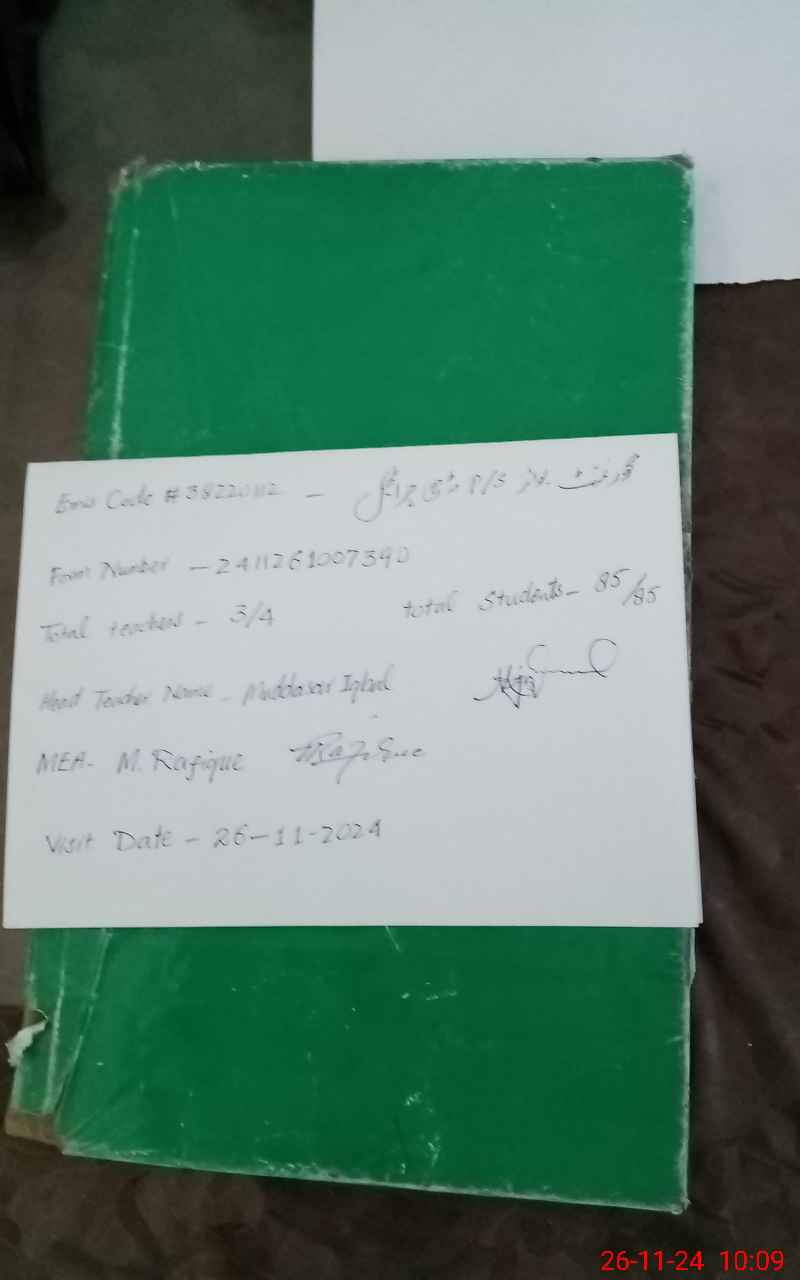 Emis Code # 38220112 - گورنمنٹ بوائز P/S
Form Number - 2411261007390
Total teachers - 3/4 total Students - 85/85
Head Teacher Name - Muddasar Iqbal
MEA - M. Rafique
Visit Date - 26-11-2024
26-11-24 10:09